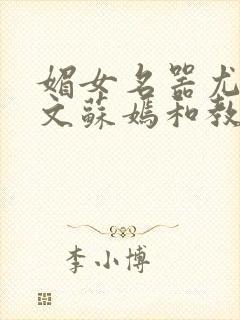 媚女名器尤
文蘇媽和教
李小博